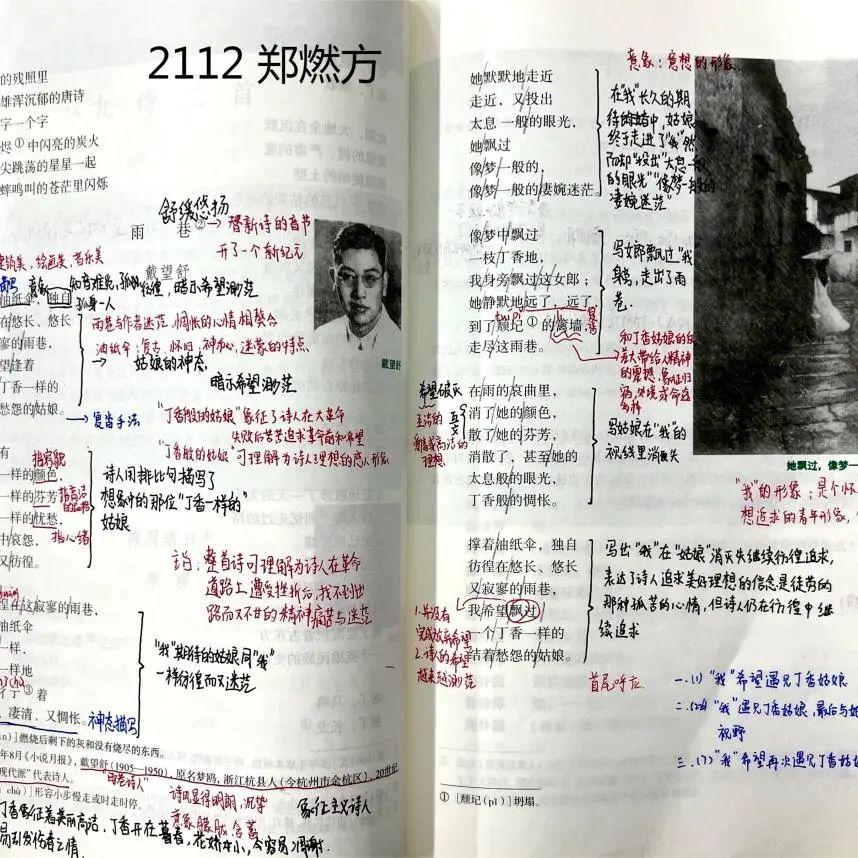 2112 郑燃方
的残照里
雄浑沉郁的唐诗
字一个字
烬①中闪亮的炭火
尖跳荡的星星一起
蟀鸣叫的苍茫里闪烁
舒缓悠扬
雨 巷② → 替新诗的音节
开了一个新纪元
绘画美，音乐美
戴望舒
彷徨，暗示希望渺茫
油纸伞，独自
孤身一人
在悠长、悠长
寥的雨巷，
雨巷与作者迷茫、惆怅的心情相契合
望逢着
油纸伞：复古、怀旧、神秘、迷蒙的特点
丁香一样的
姑娘的神态
愁怨的姑娘。
暗示希望渺茫
戴望舒
→ 复沓手法
"丁香般的姑娘"象征了诗人在大革命
失败后苦苦追求革命前和希望
"丁香般的姑娘"可理解为诗人理想的恋人形象
有
一样的颜色，
一样的芬芳
一样的忧愁，
中哀怨，
又彷徨。
指高洁的品格
指心绪
诗人用排比句描写了
想象中的那位"丁香一样的"
姑娘
主旨：整首诗可理解为诗人在革命
道路上遭受挫折后，找不到出
路而又不甘的精神痛苦与迷茫
徨在这寂寥的雨巷，
油纸伞
一样，
一样地
彳亍③着
、凄清、又惆怅。
神态描写
"我"期待的姑娘同"我"
一样彷徨而又迷茫
]燃烧后剩下的灰和没有烧尽的东西。
年8月《小说月报》，戴望舒（1905—1950），原名梦鸥，浙江杭县人（今杭州市余杭区），20世纪
现代派"代表诗人。
"雨巷诗人"
chù）]形容小步慢走或时走时停。
诗风显得明朗、沉挚
意象朦胧、含蓄
象征主义诗人
丁香象征着美丽高洁，丁香开在暮春，花娇小，令容易凋谢
易引发伤春之情
意象：意想的形象
她默默地走近
走近，又投出
太息一般的眼光，
她飘过
像梦一般的，
像梦一般的凄婉迷茫。
在"我"长久的期
待的中，姑娘
终于走进了"我"然
而却"投出"太息一般
的眼光"像梦一般的
凄婉迷茫"
像梦中飘过
一枝丁香地，
我身旁飘过这女郎；
她静默地远了，远了，
到了颓圮①的篱墙，
走尽这雨巷。
写女郎飘过"我"
身旁，走出了雨
巷.
和丁香姑娘的
在雨的哀曲里，
消了她的颜色，
散了她的芬芳，
消散了，甚至她的
太息般的眼光，
丁香般的惆怅。
希望破灭
写姑娘在"我"的
视线里消失
她飘过，像梦一
"我"的形象：是个怀
想追求的青年形象，
撑着油纸伞，独自
彷徨在悠长、悠长
又寂寥的雨巷，
我希望飘过
一个丁香一样的
结着愁怨的姑娘。
写出"我"在"姑娘"消失继续彷徨追求，
表达了诗人追求美好理想的信念是徒劳的
那种孤苦的心情，但诗人仍在彷徨中继
续追求
1.并没有
完成放弃希望
2.诗人的希望
越来越渺茫
首尾呼应
一.(1) "我"希望遇见丁香姑娘
二. "我"遇见丁香姑娘，最后与她
视野
三.(7) "我"希望再次遇见丁香姑娘
①［颓圮（pǐ）］坍塌。